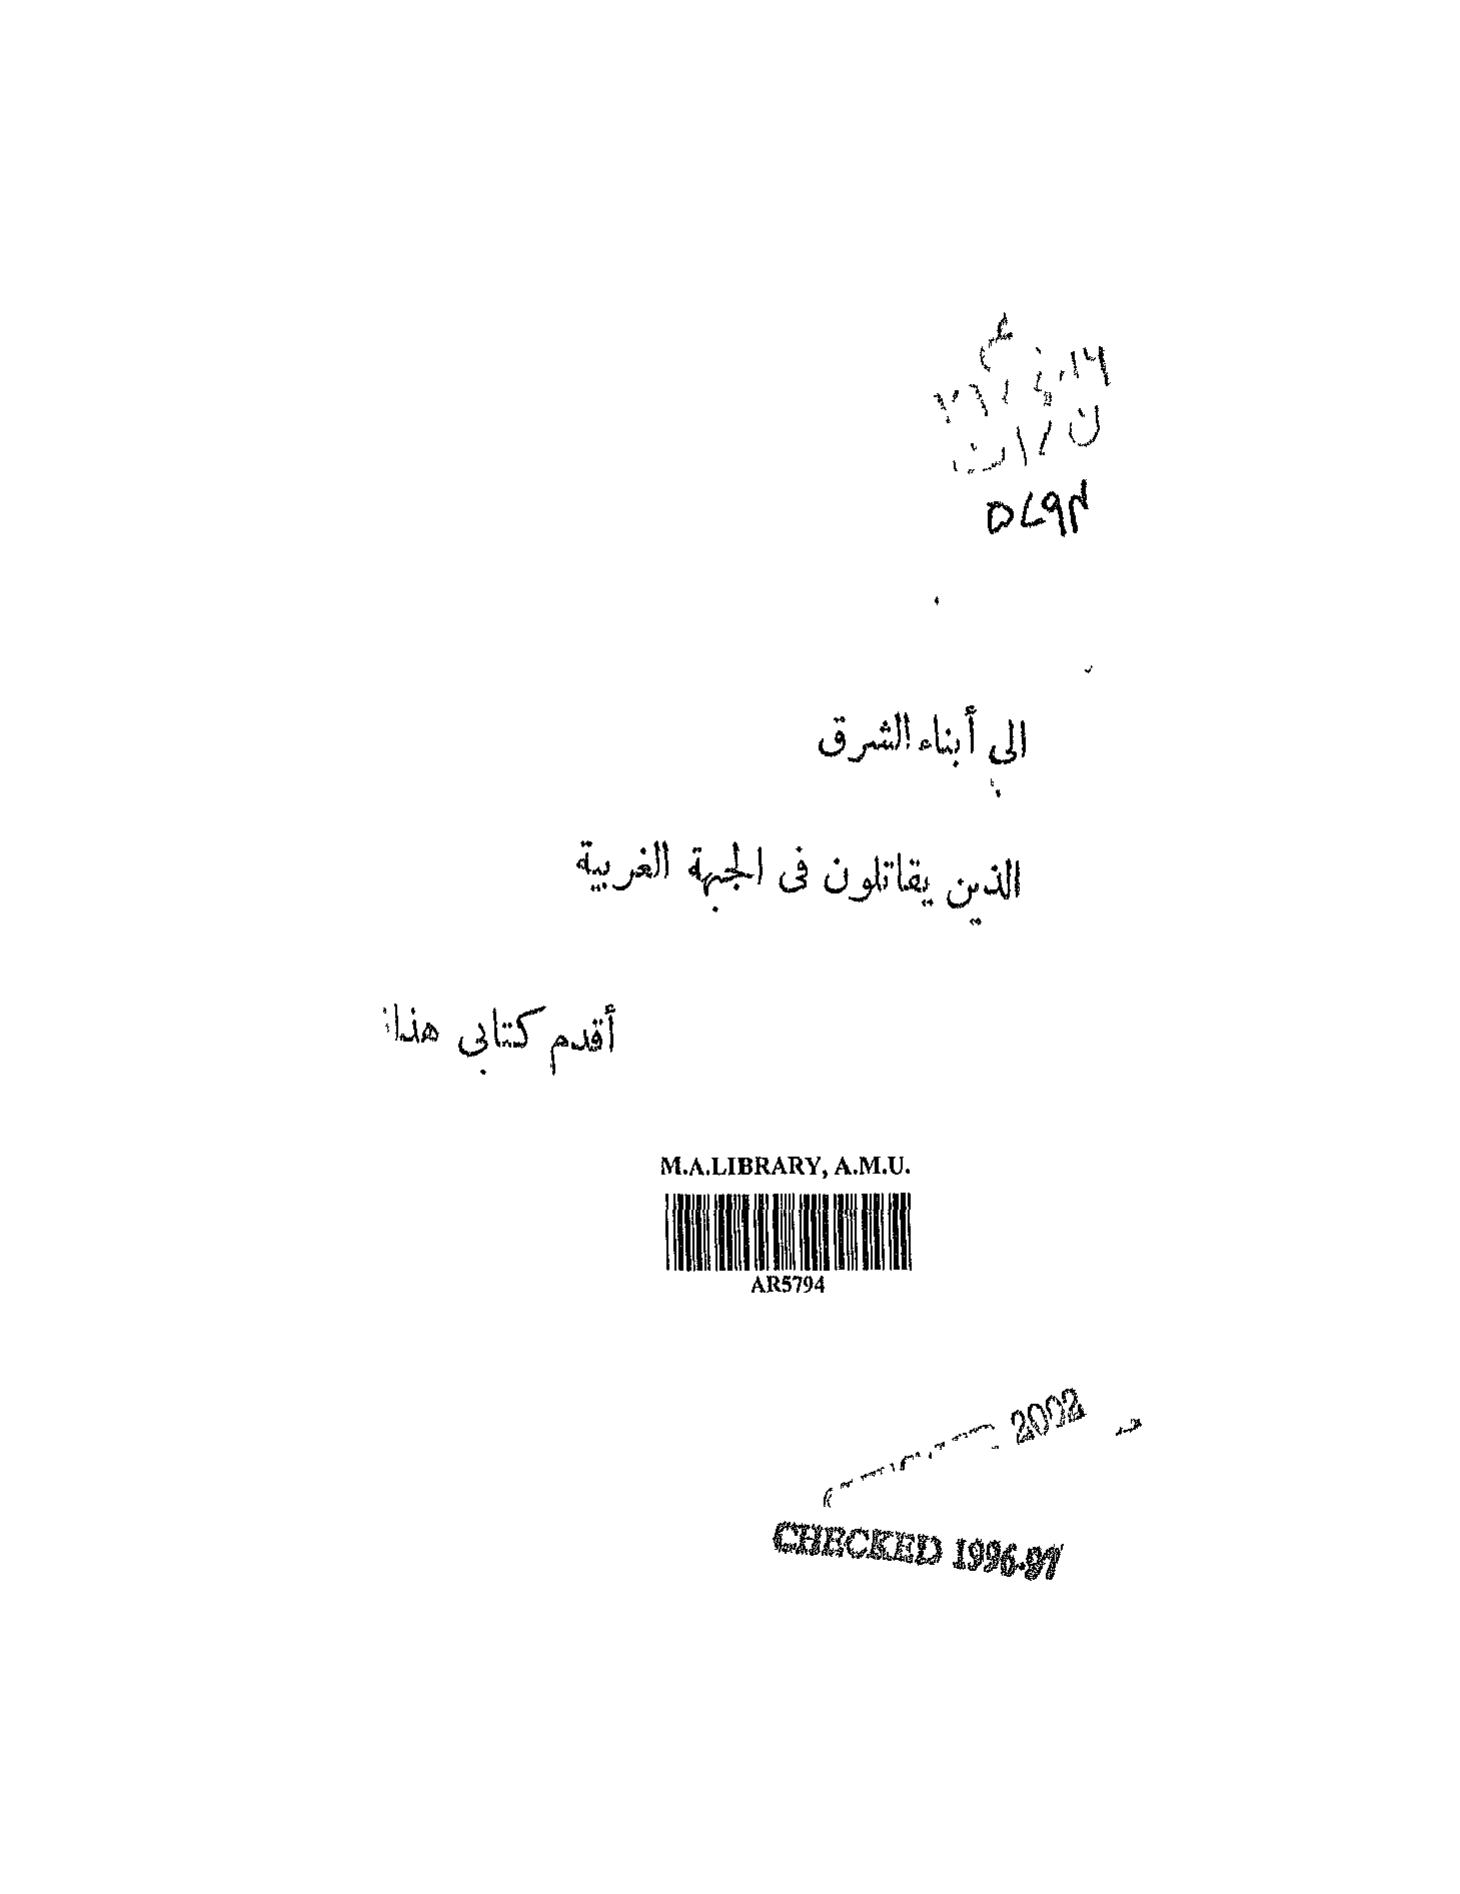 ۵۷۹۴
الى أبناء الشرق
الذين يقاتلون فى الجبهة الغربية
أقدم كتابى هذا
M.A.LIBRARY, A.M.U.
AR5794
2002
CHECKED 1996-97